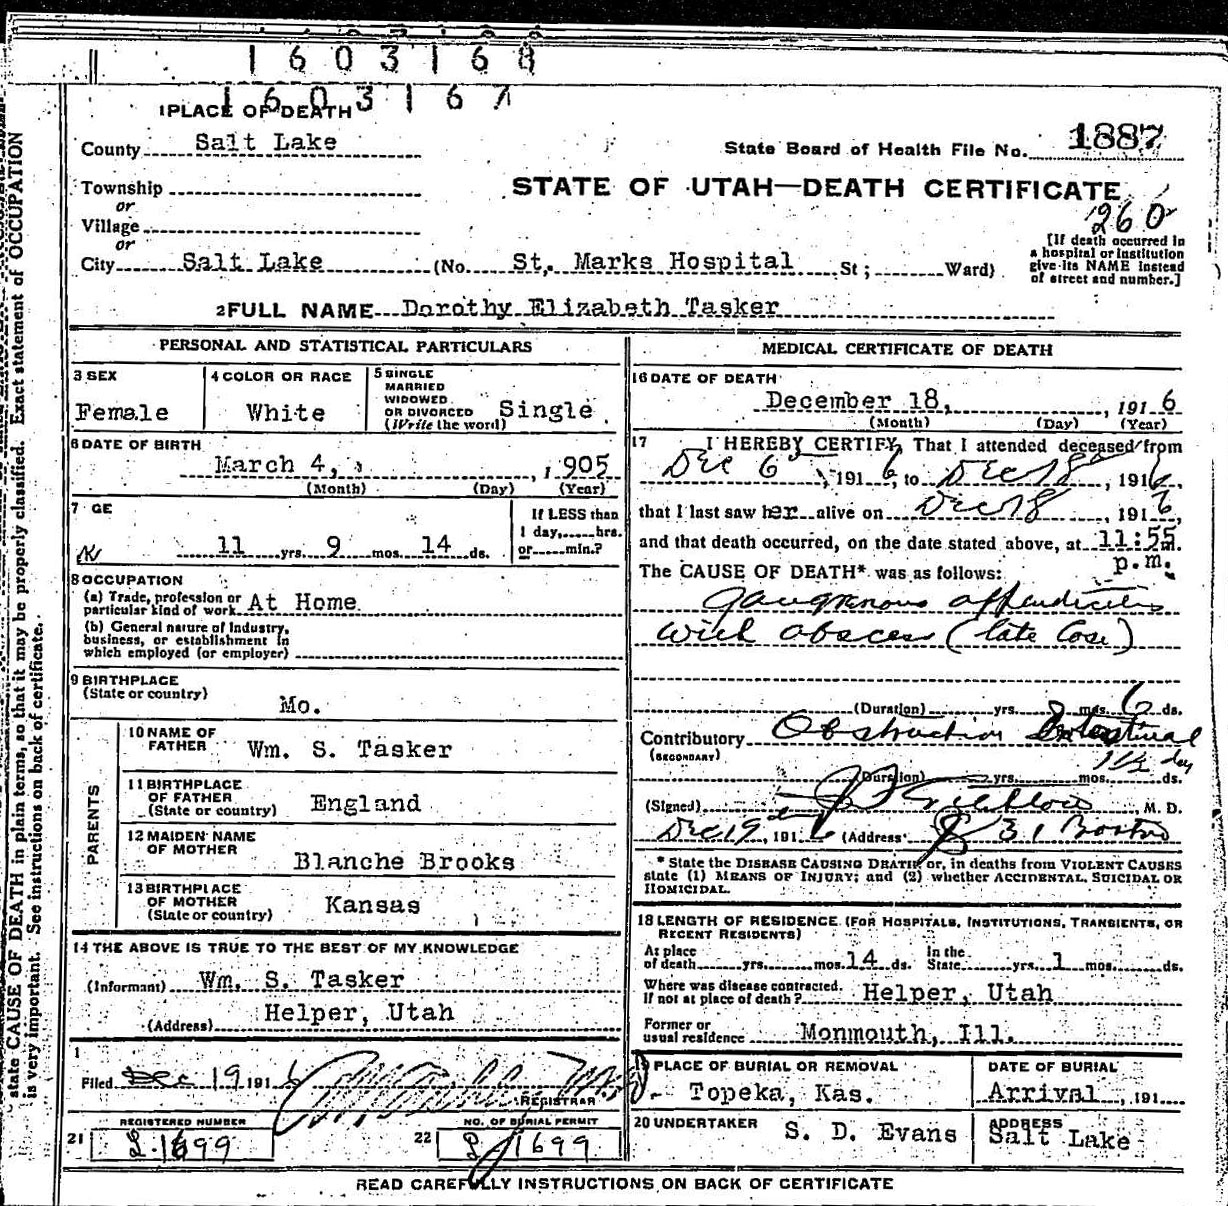 1603168
1603167
1 PLACE OF DEATH
County Salt Lake
State Board of Health File No. 1887
Township
or
Village
or
STATE OF UTAH—DEATH CERTIFICATE
260
City Salt Lake (No. St. Marks Hospital St; Ward)
[If death occurred in
a hospital or institution
give its NAME instead
of street and number.]
2 FULL NAME Dorothy Elizabeth Tasker
PERSONAL AND STATISTICAL PARTICULARS
3 SEX
Female
4 COLOR OR RACE
White
5 SINGLE
MARRIED
WIDOWED
OR DIVORCED
(Write the word)
Single
6 DATE OF BIRTH
March 4, , 1905
(Month) (Day) (Year)
7 GE
11 yrs. 9 mos. 14 ds.
If LESS than
1 day, hrs.
or min.?
8 OCCUPATION
(a) Trade, profession or
particular kind of work At Home
(b) General nature of Industry,
business, or establishment in
which employed (or employer)
9 BIRTHPLACE
(State or country)
Mo.
PARENTS
10 NAME OF
FATHER Wm. S. Tasker
11 BIRTHPLACE
OF FATHER
(State or country) England
12 MAIDEN NAME
OF MOTHER
Blanche Brooks
13 BIRTHPLACE
OF MOTHER
(State or country) Kansas
14 THE ABOVE IS TRUE TO THE BEST OF MY KNOWLEDGE
(Informant) Wm. S. Tasker
(Address) Helper, Utah
1
Filed Dec 19 1916
REGISTRAR
REGISTERED NUMBER
21 1699
NO. OF BURIAL PERMIT
22 1699
MEDICAL CERTIFICATE OF DEATH
16 DATE OF DEATH
December 18, , 1916
(Month) (Day) (Year)
17 I HEREBY CERTIFY, That I attended deceased from
Dec 6 , 1916, to Dec 18 , 1916,
that I last saw her alive on Dec 18 , 1916,
and that death occurred, on the date stated above, at 11:55 m.
p.m.
The CAUSE OF DEATH* was as follows:
gangrenous appendicitis
with abscess (late Case)
(Duration) yrs. mos. 6 ds.
Contributory Obstruction Intestinal
(SECONDARY)
1½ day
(Duration) yrs. mos. ds.
(Signed) M. D.
Dec 19, 1916 (Address) 31 Boston
* State the DISEASE CAUSING DEATH, or, in deaths from VIOLENT CAUSES
state (1) MEANS OF INJURY; and (2) whether ACCIDENTAL, SUICIDAL OR
HOMICIDAL.
18 LENGTH OF RESIDENCE (FOR HOSPITALS, INSTITUTIONS, TRANSIENTS, OR
RECENT RESIDENTS)
At place
of death yrs. mos. 14 ds.
In the
State yrs. 1 mos. ds.
Where was disease contracted,
If not at place of death? Helper, Utah
Former or
usual residence Monmouth, Ill.
PLACE OF BURIAL OR REMOVAL
Topeka, Kas.
DATE OF BURIAL
Arrival , 191
20 UNDERTAKER S. D. Evans
ADDRESS
Salt Lake
READ CAREFULLY INSTRUCTIONS ON BACK OF CERTIFICATE
state CAUSE OF DEATH in plain terms, so that it may be properly classified. Exact statement of OCCUPATION
is very important. See instructions on back of certificate.